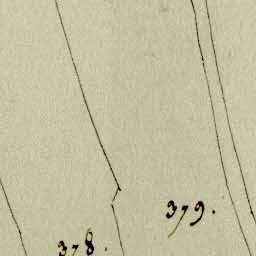 379.
378.